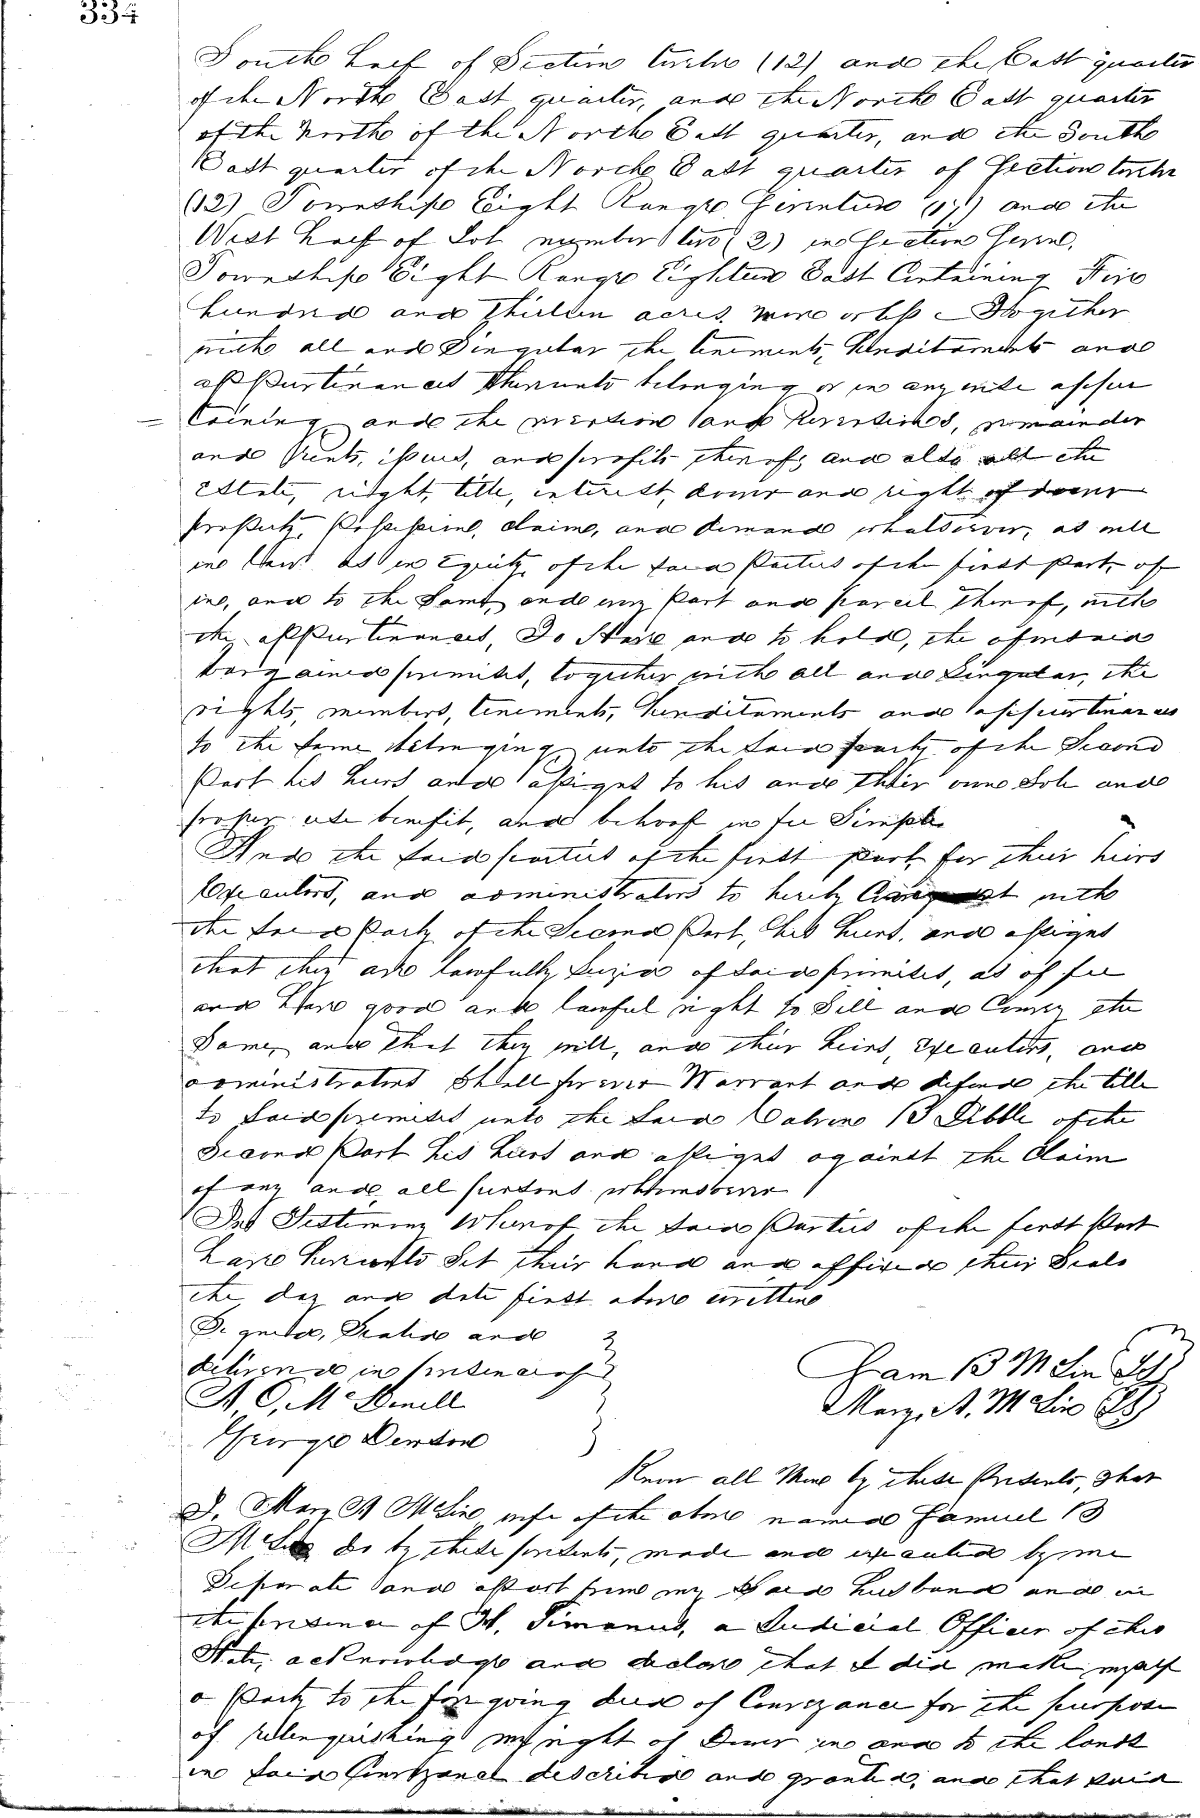 334
South half of Section twelve (12) and the East quarter
of the North East quarter, and the North East quarter
of the North of the North East quarter, and the South
East quarter of the North East quarter of Section twelve
(12) Township Eight Range Seventeen (17) and the
West half of Lot number two (2) in Section Seven,
Township Eight Range Eighteen East Containing Five
hundred and thirteen acres more or less - Together
with all and Singular the tenements, hereditaments and
appurtenances thereunto belonging or in any wise apper
taining and the reversion and Reversions, remainder
and Rents, issues, and profits thereof; and also all the
Estate, right, title, interest, dower and right of dower
property, Possession, claim, and demand whatsoever, as well
in law as in Equity, of the said Parties of the first part, of
in, and to the Same, and every part and parcel thereof, with
the appurtenances, To Have and to hold, the aforesaid
bargained premises, together with all and Singular, the
rights, members, tenements, hereditaments and appurtenances
to the same belonging unto the said party of the Second
Part his heirs and assigns to his and their own Sole and
proper use benefit, and behoof in fee Simple
And the said parties of the first part, for their heirs
Executors, and administrators to hereby with
the said Party of the Second Part, his heirs, and assigns
that they are lawfully Seized of said premises, as of fee
and Have good and lawful right to Sell and Convey the
Same, and that they will, and their heirs, Executors, and
administrators Shall forever Warrant and defend the title
to said premises unto the said Calvin B Dibble of the
Second Part his heirs and assigns against the Claim
of any and all persons whomsoever
In Testimony Whereof the said Parties of the first Part
have hereunto Set their hand and affixed their Seals
the day and date first above written
Signed, Sealed and
delivered in presence of
George Dewson
Sam B McLin LS
Mary, A. McLin LS
Know all Men by these Presents, That
I, Mary A McLin wife of the above named Samuel B
McLin do by these presents, made and executed by me
Separate and apart from my Said husband and in
the presence of a Judicial Officer of this
State, acknowledge and declare that I did make myself
a Party to the foregoing deed of Conveyance for the purpose
of relenquishing my right of Dower in and to the lands
in said Conveyance described and granted, and that said